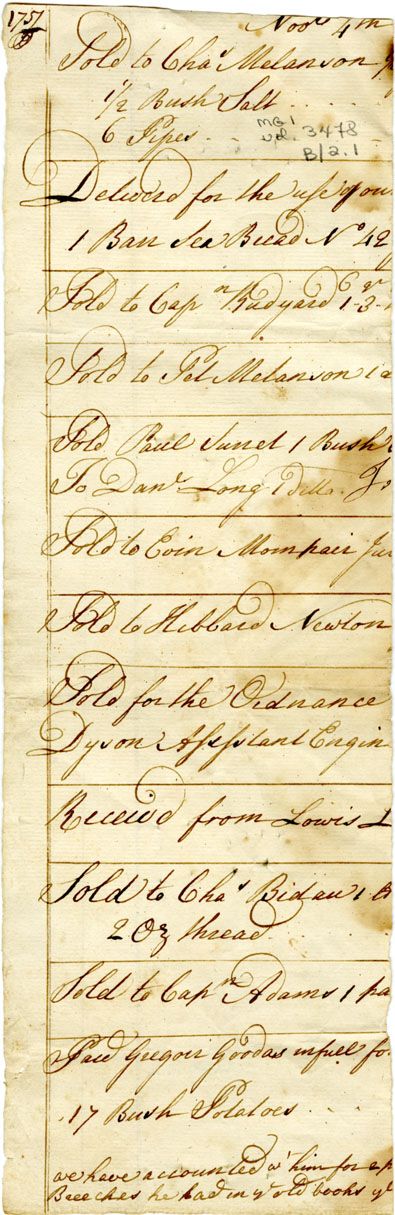 1751
Novr 4th
Sold to Chas Melanson
1 1/2 Bush Salt
6 Pipes
MG 1
vol. 3478
B/2.1
Deliverd for the use of you
1 Barr Sea Bread No 42
Sold to Capn Rudyard 1-3-
Sold to Pel Melanson 1
Sold Paul 1 Bush
To Danl Long 1 ditto
Sold to Eoin Mompair Jun
Sold to Hibbard Newton
Sold for the Ordnance
Dyson Assistant Engin
Receivd from Lowis L
Sold to Chas Bidau 1
2 Oz thread
Sold to Capn Adams 1 pa
Paid Gregoir Goodas in full fo
17 Bush Potatoes
we have accounted wt him for 2 p
Breeches he had in ye old books